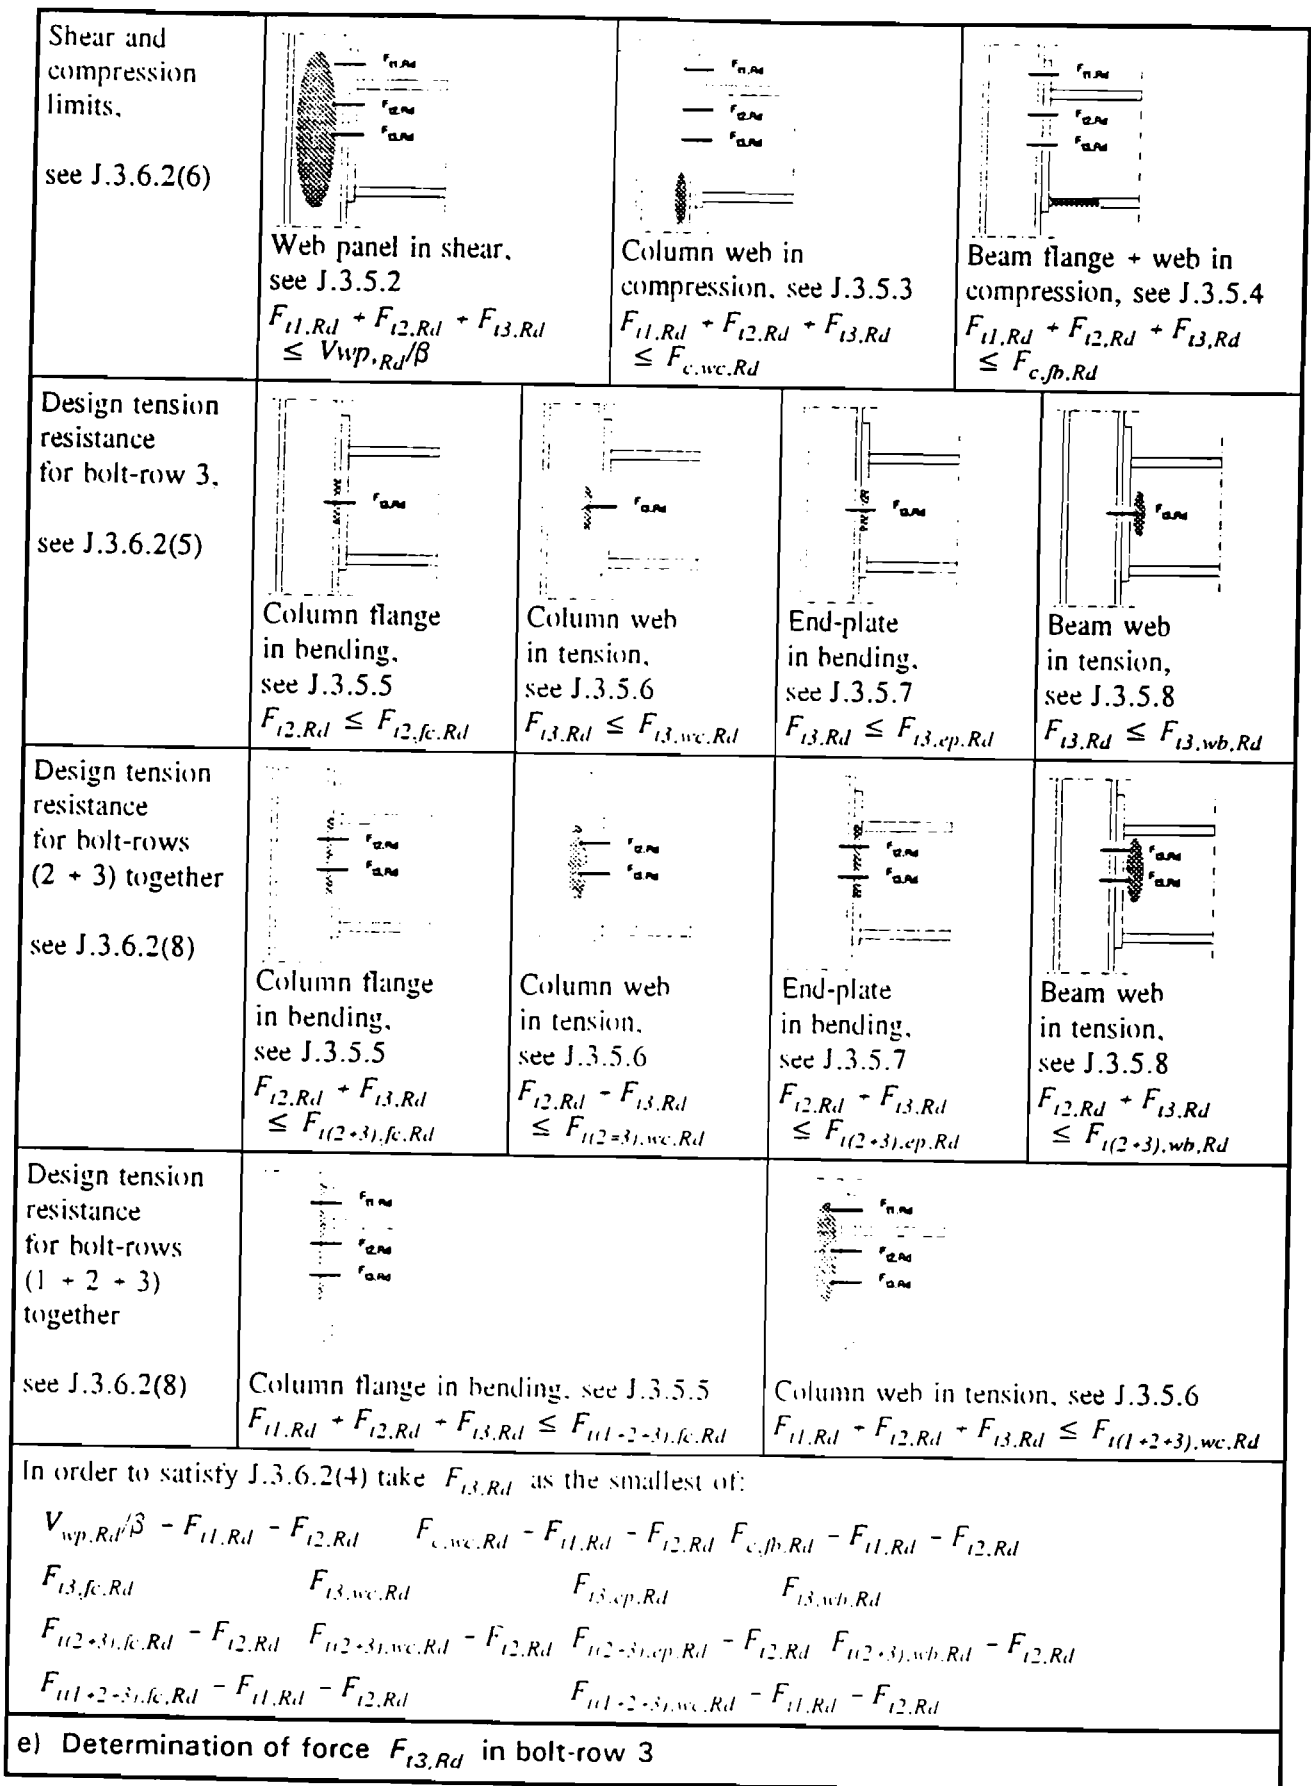 Shear and
compression
limits,
see J.3.6.2(6)
F_t1.Rd
F_t2.Rd
F_t3.Rd
Web panel in shear,
see J.3.5.2
F_t1.Rd + F_t2.Rd + F_t3.Rd
≤ Vwp,Rd/β
F_t1.Rd
F_t2.Rd
F_t3.Rd
Column web in
compression, see J.3.5.3
F_t1.Rd + F_t2.Rd + F_t3.Rd
≤ F_c.wc.Rd
F_t1.Rd
F_t2.Rd
F_t3.Rd
Beam flange + web in
compression, see J.3.5.4
F_t1.Rd + F_t2.Rd + F_t3.Rd
≤ F_c.fb.Rd
Design tension
resistance
for bolt-row 3,
see J.3.6.2(5)
F_t3.Rd
Column flange
in bending,
see J.3.5.5
F_t2.Rd ≤ F_t2.fc.Rd
F_t3.Rd
Column web
in tension,
see J.3.5.6
F_t3.Rd ≤ F_t3.wc.Rd
F_t3.Rd
End-plate
in bending,
see J.3.5.7
F_t3.Rd ≤ F_t3.ep.Rd
F_t3.Rd
Beam web
in tension,
see J.3.5.8
F_t3.Rd ≤ F_t3.wb.Rd
Design tension
resistance
for bolt-rows
(2 + 3) together
see J.3.6.2(8)
F_t2.Rd
F_t3.Rd
Column flange
in bending,
see J.3.5.5
F_t2.Rd + F_t3.Rd
≤ F_t(2+3).fc.Rd
F_t2.Rd
F_t3.Rd
Column web
in tension,
see J.3.5.6
F_t2.Rd + F_t3.Rd
≤ F_t(2=3).wc.Rd
F_t2.Rd
F_t3.Rd
End-plate
in bending,
see J.3.5.7
F_t2.Rd + F_t3.Rd
≤ F_t(2+3).ep.Rd
F_t3.Rd
F_t3.Rd
Beam web
in tension,
see J.3.5.8
F_t2.Rd + F_t3.Rd
≤ F_t(2+3).wb.Rd
Design tension
resistance
for bolt-rows
(1 + 2 + 3)
together
see J.3.6.2(8)
F_t1.Rd
F_t2.Rd
F_t3.Rd
Column flange in bending, see J.3.5.5
F_t1.Rd + F_t2.Rd + F_t3.Rd ≤ F_t(1+2+3).fc.Rd
F_t1.Rd
F_t2.Rd
F_t3.Rd
Column web in tension, see J.3.5.6
F_t1.Rd + F_t2.Rd + F_t3.Rd ≤ F_t(1+2+3).wc.Rd
In order to satisfy J.3.6.2(4) take F_t3.Rd as the smallest of:
V_wp.Rd/β - F_t1.Rd - F_t2.Rd F_c.wc.Rd - F_t1.Rd - F_t2.Rd F_c.fb.Rd - F_t1.Rd - F_t2.Rd
F_t3.fc.Rd F_t3.wc.Rd F_t3.ep.Rd F_t3.wb.Rd
F_t(2+3).fc.Rd - F_t2.Rd F_t(2+3).wc.Rd - F_t2.Rd F_t(2+3).ep.Rd - F_t2.Rd F_t(2+3).wb.Rd - F_t2.Rd
F_t(1+2+3).fc.Rd - F_t1.Rd - F_t2.Rd F_t(1+2+3).wc.Rd - F_t1.Rd - F_t2.Rd
e) Determination of force F_t3,Rd in bolt-row 3